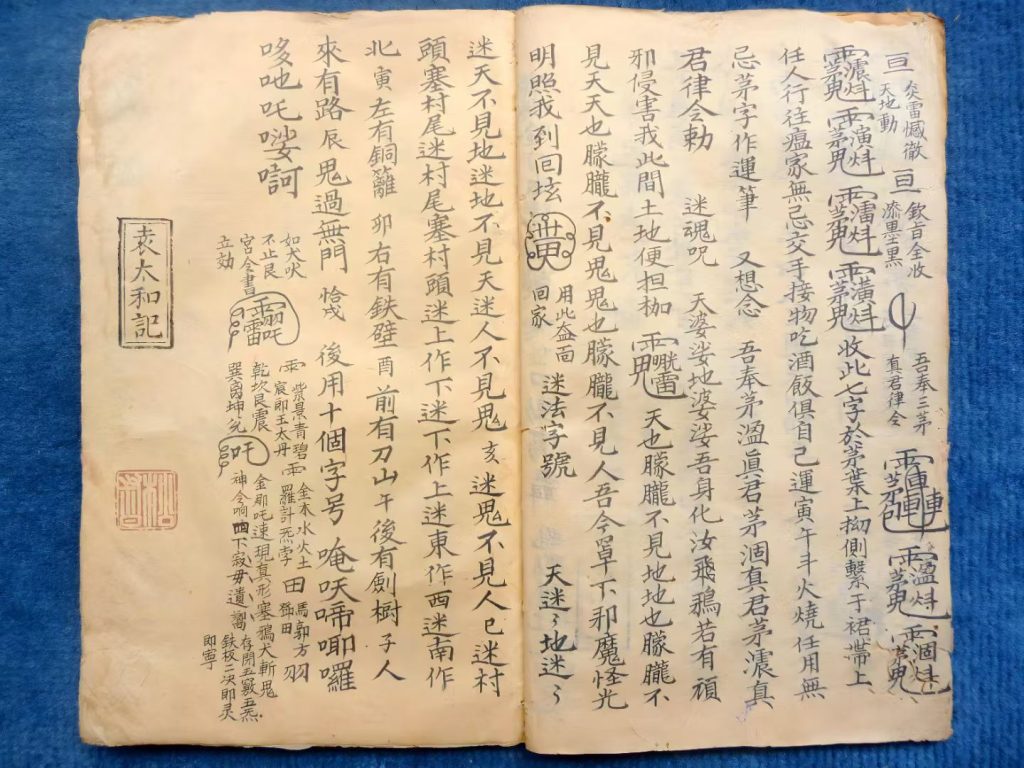 亘
炎雷憾徹
天地動
亘
欽百全收
漆墨黑
吾奉三茅
真君律令
收此七字於茅葉上拗側繫于裙帶上
任人行往瘟家無忌交手接物吃酒飯俱自己運寅午斗火燒任用無
忌茅字作運筆 又想念 吾奉茅溫眞君茅涸真君茅濃真
君律令勅 迷魂咒 天婆娑地婆娑吾身化汝飛鴉若有頑
邪侵害我此間土地便担枷 天也朦朧不見地地也朦朧不
見天天也朦朧不見鬼鬼也朦朧不見人吾今罩下邪魔怪光
明照我到回坛 回家 用此益面 迷法字號 天迷〻地迷〻
迷天不見地迷地不見天迷人不見鬼 亥 迷鬼不見人巳迷村
頭塞村尾迷村尾塞村頭迷上作下迷下作上迷東作西迷南作
北 寅 左有銅籬 卯 右有鉄壁 酉 前有刀山 午 後有劍樹 子 人
來有路 辰 鬼過無門 恰 戌 後用十個字号 唵㕭啼唧囉
哆吔吒㗲㗿
如犬吠
不止艮
宮令書
立効
雨 紫景青碧 雨 金木水火土 田 馬郭方 羽
宸即玉太丹 羅計炁孛 稀田
乾坎艮震
巽离坤兌
金那吒速現真形塞鵝犬斬鬼
神令响 四下寂毋遺嚮
存閉五竅五炁
鉄板二次即灵
即寧
袁太和記